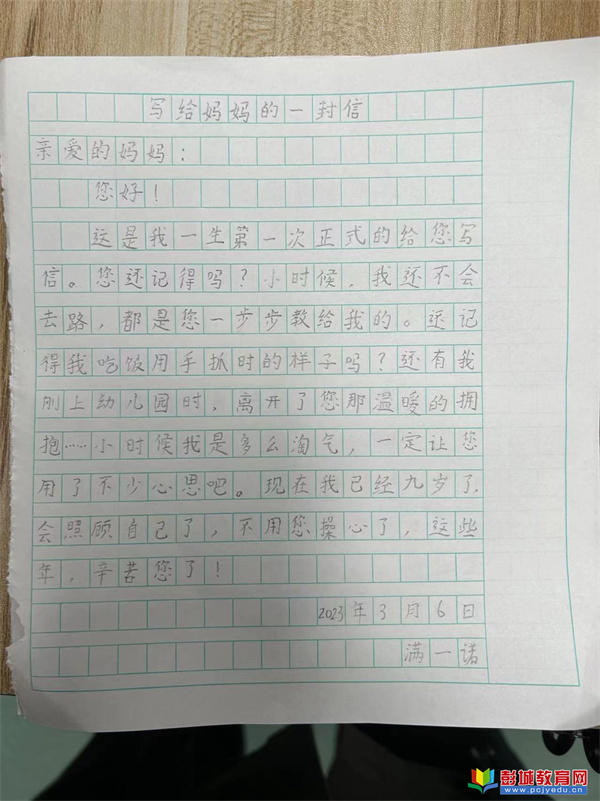 写给妈妈的一封信
亲爱的妈妈：
您好！
这是我一生第一次正式的给您写
信。您还记得吗？小时候，我还不会
去路，都是您一步步教给我的。还记
得我吃饭用手抓时的样子吗？还有我
刚上幼儿园时，离开了您那温暖的拥
抱……小时候我是多么淘气，一定让您
用了不少心思吧。现在我已经九岁了，
会照顾自己了，不用您操心了，这些
年，辛苦您了！
2023年3月6日
满一诺
彭城教育网
www.pcjyedu.cn